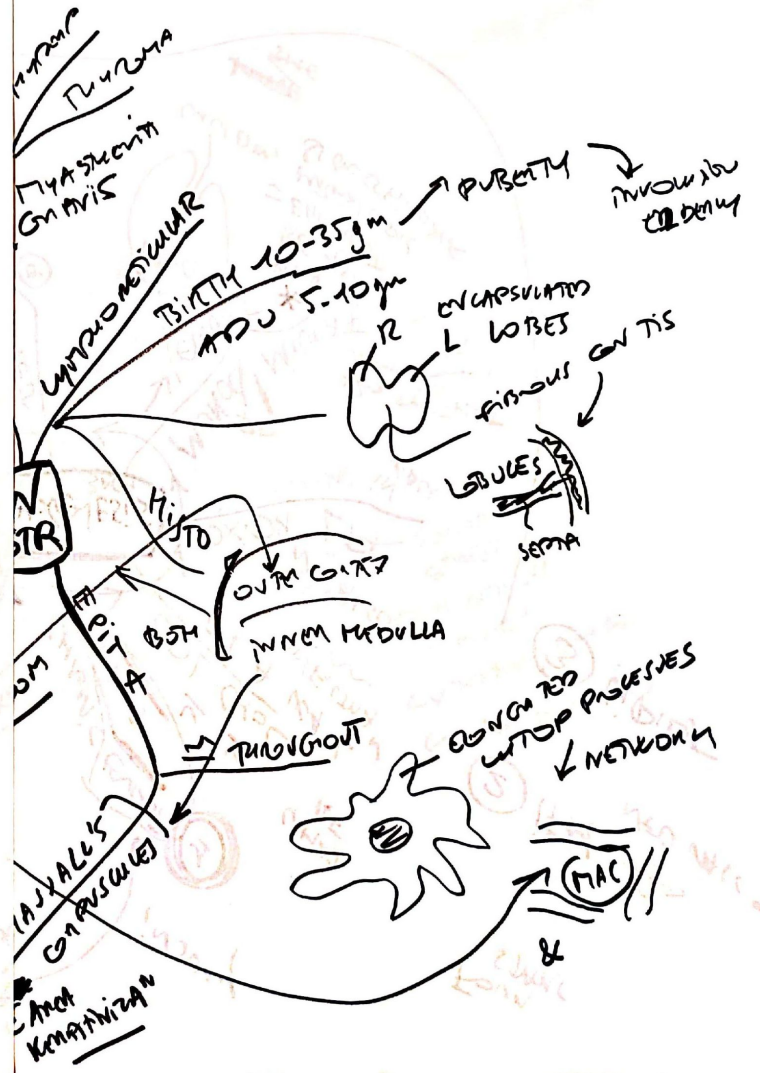 THYMOMA
MYASTHENIA
GRAVIS
LYMPHORETICULAR
BIRTH 10-35gm
PUBERTY
INVOLUTION
ELDERLY
ADU 5-10gm
R L
ENCAPSULATED
LOBES
FIBROUS CON TIS
LOBULES
SEPTA
STR
HISTO
OUTER CORTEX
INNER MEDULLA
BOTH
EPIT A
THROUGHOUT
ELONGATED
CYTOP PROCESSES
NETWORK
MAC
&
HASSALL'S
CORPUSCULES
AREA
KERATINIZAN